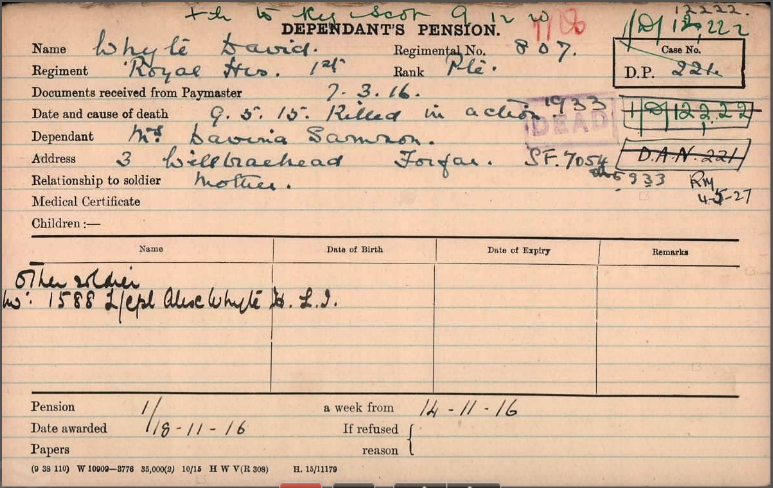 Tfr to Reg Scot 9 12 20
12222.
1/D/12222
DEPENDANT'S PENSION.
Name Whyte David. Regimental No. 807.
Case No.
D.P. 221.
Regiment Royal Hrs. 1st Rank Pte.
Documents received from Paymaster 7.3.16.
Date and cause of death 9.5.15. Killed in action. 1933
1/D/12222
DEAD
Dependant Mrs Davina Samson.
Address 3 Forfar. SF.7054
D.A.N. 221
933
4-5-27
Relationship to soldier Mother.
Medical Certificate
Children:—
Name Date of Birth Date of Expiry Remarks
Other soldier
No. 1588 L/cpl Alex Whyte H.L.I.
Pension 1/ a week from 14-11-16
Date awarded 18-11-16 If refused
Papers reason
(9 38 110) W 10909—3776 35,000(2) 10/15 H W V(R 308) H. 15/11179